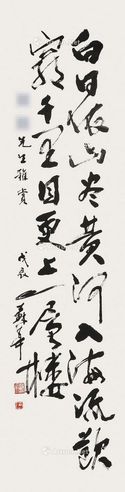 白日依山尽黄河入海流欲
穷千里目更上一层楼
先生雅赏
戊辰